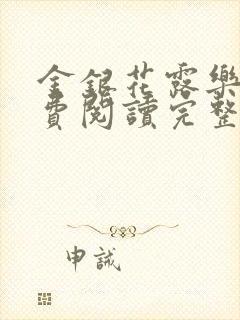 金銀花露樂
費閱讀完整
申誠